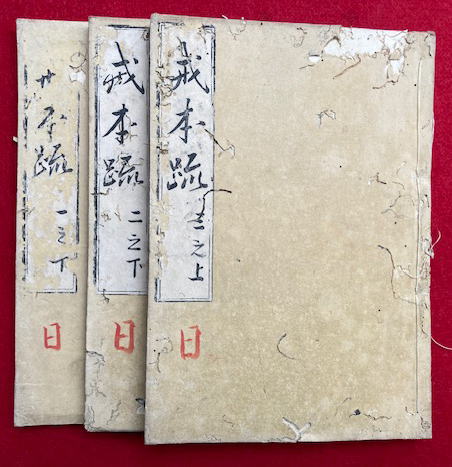 戒本疏
三之上
日
戒本疏
二之下
日
戒本疏
一之下
日